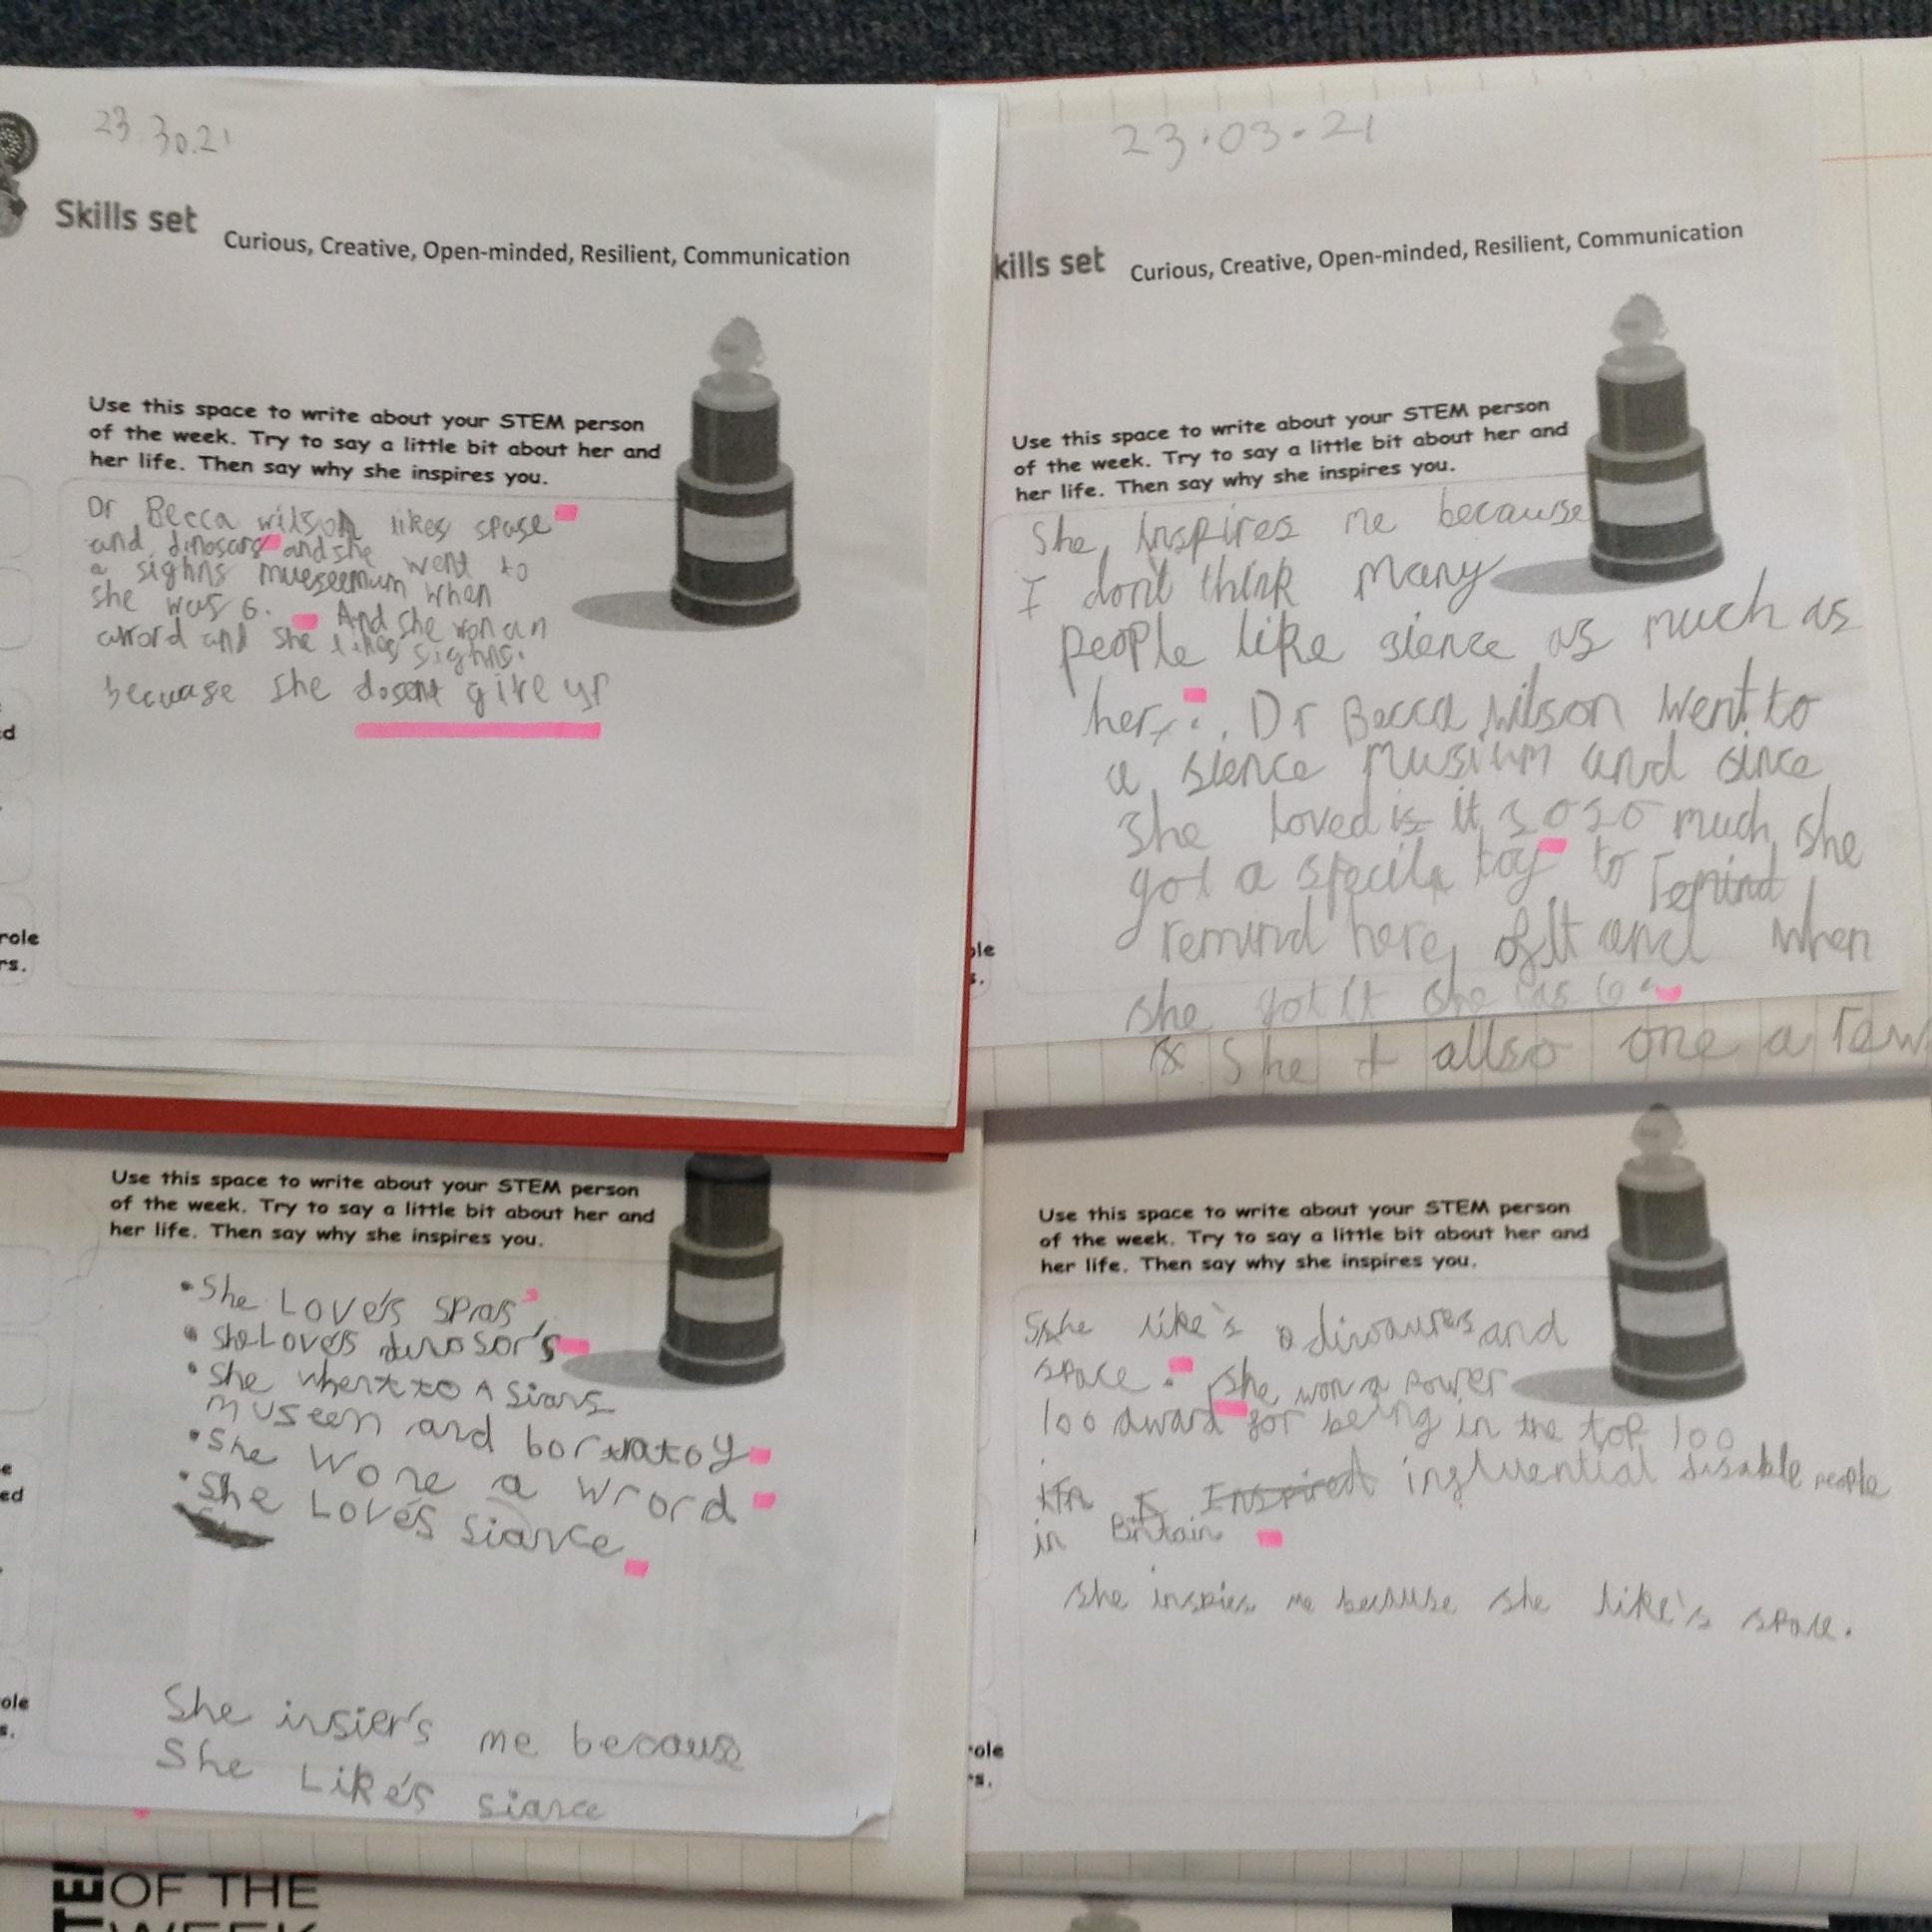 23.30.21
Skills set
Curious, Creative, Open-minded, Resilient, Communication
Use this space to write about your STEM person
of the week. Try to say a little bit about her and
her life. Then say why she inspires you.
Dr Becca wilson likes spase
and dinosars and she
a sighns mueseemum went to
she was 6. when
And she won an
arrord and she likes sighns.
becuase she dosent give up
role
rs.
23.03.21
kills set
Curious, Creative, Open-minded, Resilient, Communication
Use this space to write about your STEM person
of the week. Try to say a little bit about her and
her life. Then say why she inspires you.
She inspires me because
I don't think many
people like sience as much as
her. Dr Becca wilson went to
a sience musium and since
she loved is it so so much she
got a specila toy to remind
remind here of it and when
she got it she was 6
She allso one a few
ole
s.
Use this space to write about your STEM person
of the week. Try to say a little bit about her and
her life. Then say why she inspires you.
• She Love's spas
• she Loves dinosor's
• she whent to A sians
museem and
• She wone a wrord
• She Love's sianse
She insier's me becouse
She Like's sianse
ole
s.
Use this space to write about your STEM person
of the week. Try to say a little bit about her and
her life. Then say why she inspires you.
She like's a dinoaurers and
space. she won a power
100 award for being in the top 100
Inspired influential disable people
in Britain
she inspies me because she like's space.
role
rs.
OF THE
WEEK